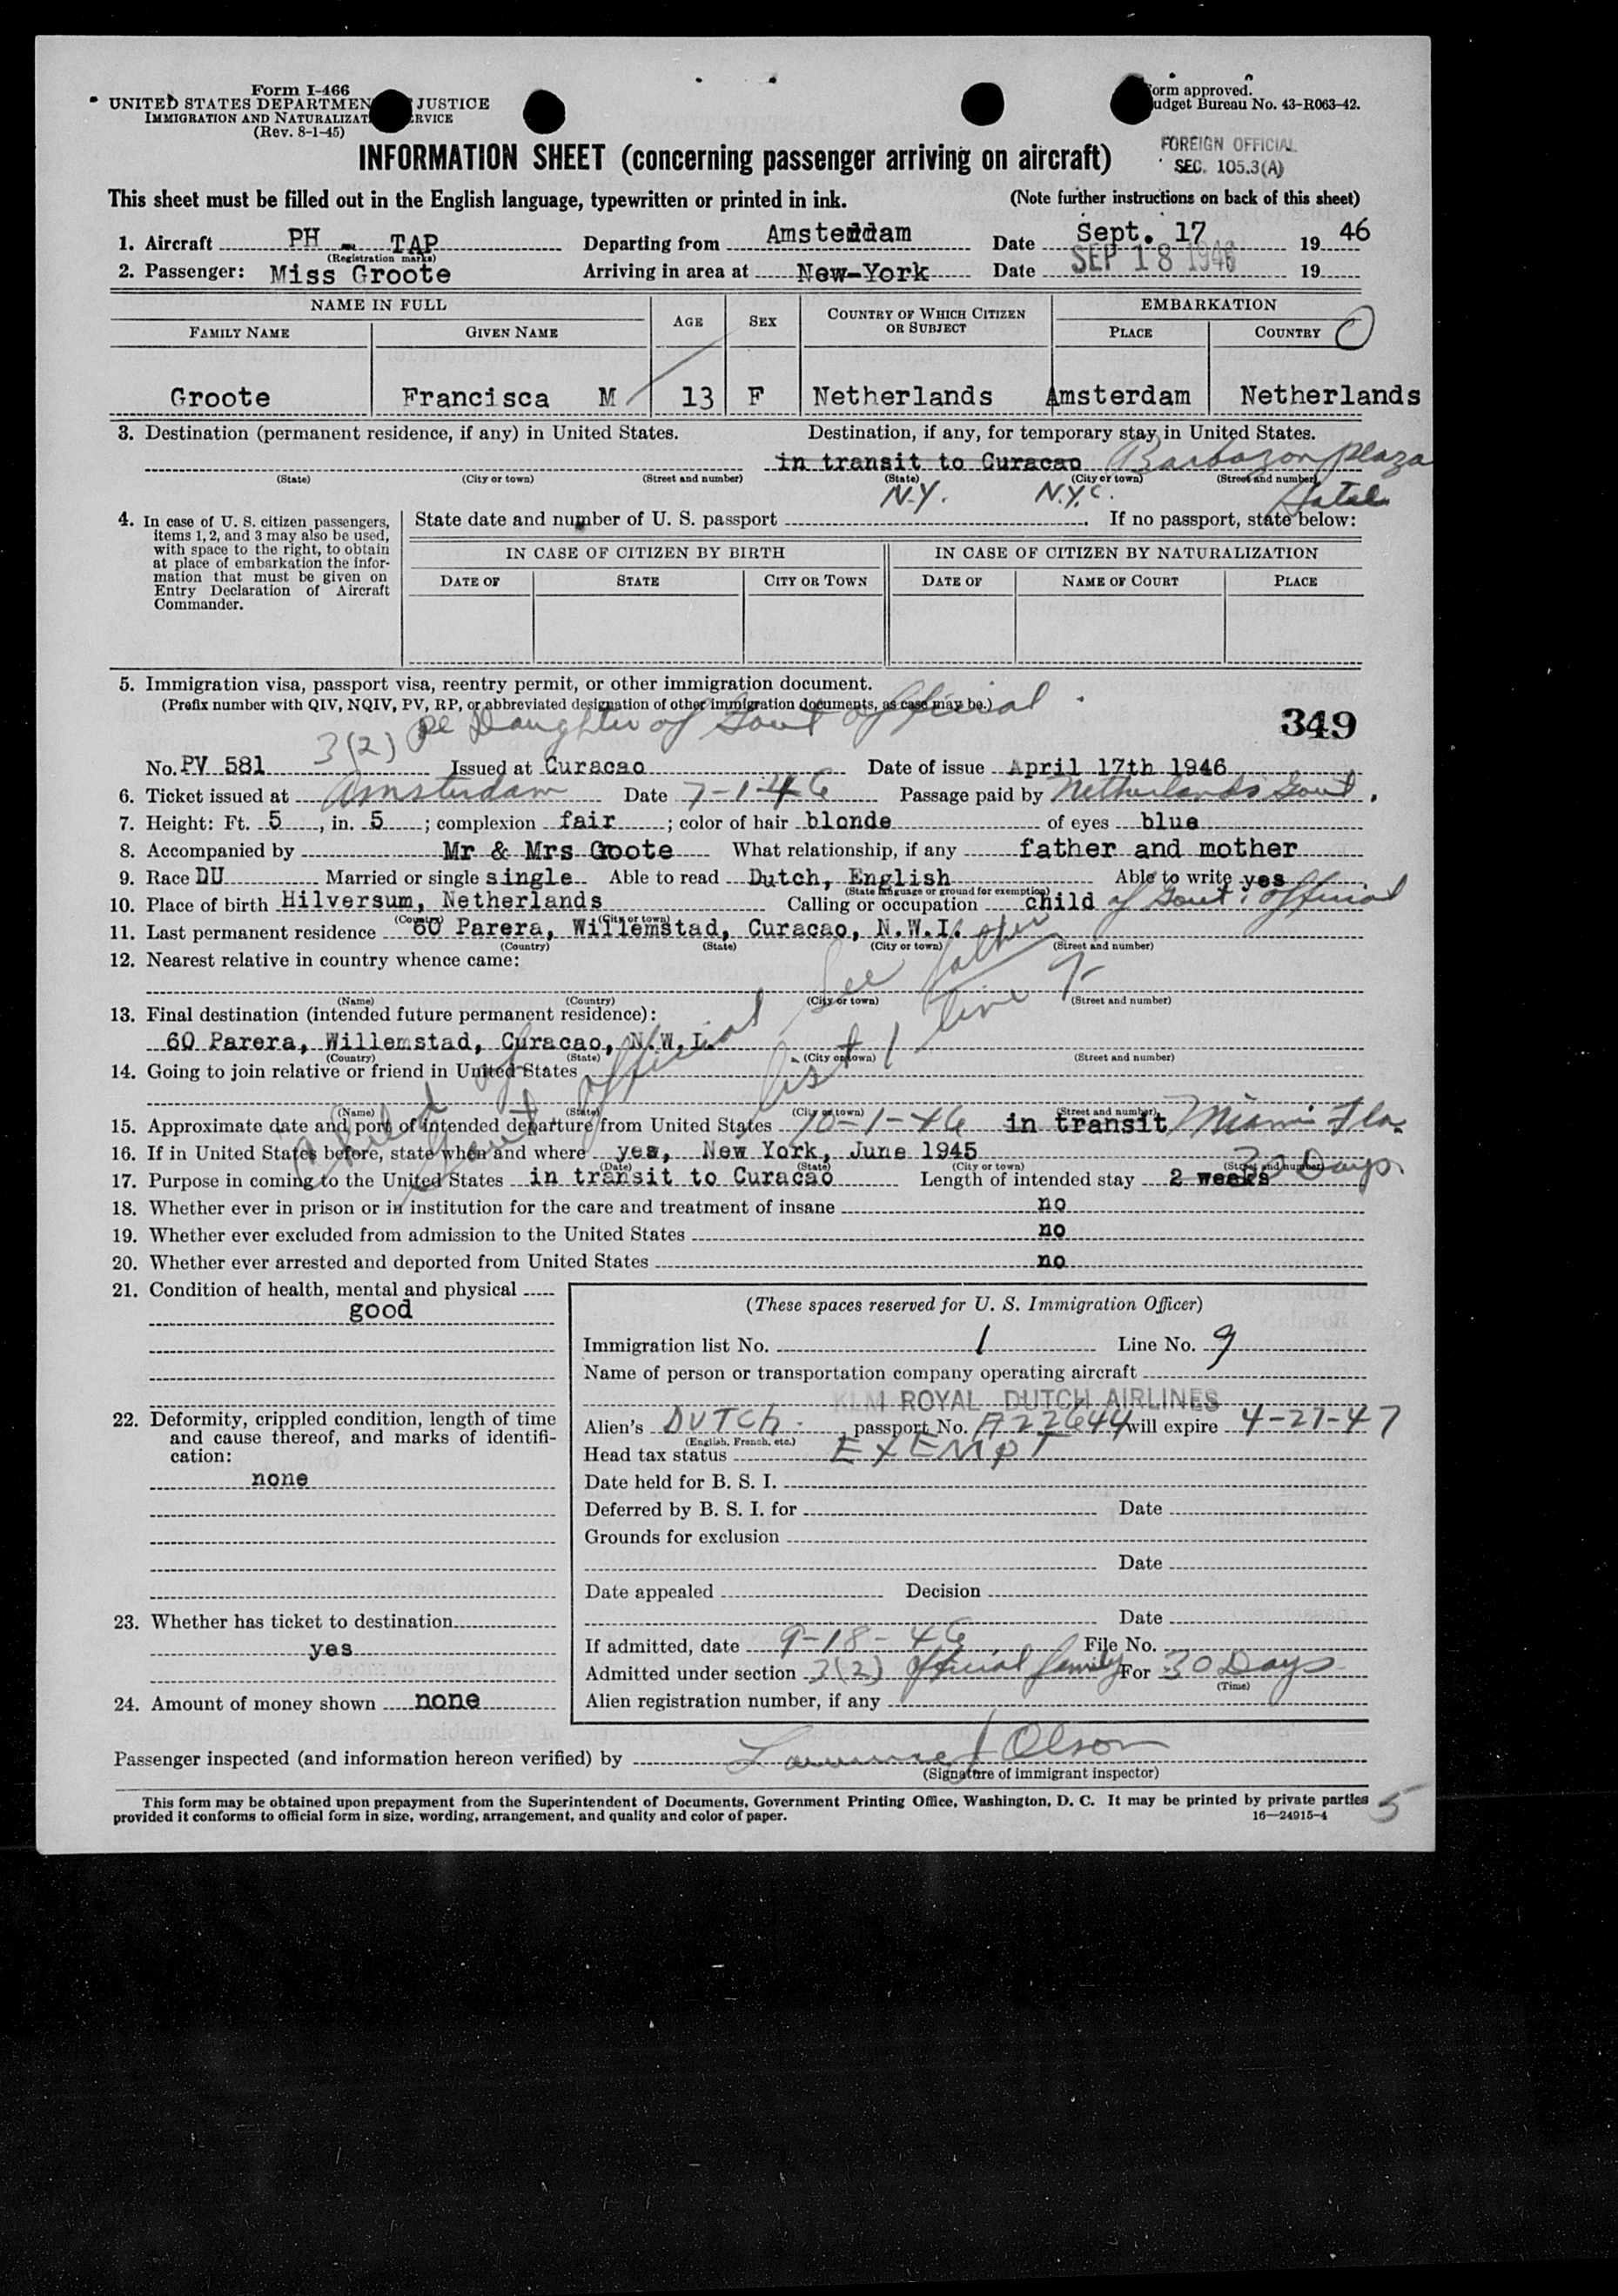 Form I-466
UNITED STATES DEPARTMEN JUSTICE
IMMIGRATION AND NATURALIZAT RVICE
(Rev. 8-1-45)
orm approved.
udget Bureau No. 43-R063-42.
FOREIGN OFFICIAL
SEC. 105.3(A)
INFORMATION SHEET (concerning passenger arriving on aircraft)
This sheet must be filled out in the English language, typewritten or printed in ink. (Note further instructions on back of this sheet)
1. Aircraft PH - TAP Departing from Amsterdam Date Sept. 17 19 46
(Registration marks)
2. Passenger: Miss Groote Arriving in area at New-York Date SEP 18 1946 19
NAME IN FULL AGE SEX COUNTRY OF WHICH CITIZEN OR SUBJECT EMBARKATION
FAMILY NAME GIVEN NAME PLACE COUNTRY
Groote Francisca M 13 F Netherlands Amsterdam Netherlands
3. Destination (permanent residence, if any) in United States. Destination, if any, for temporary stay in United States.
in transit to Curacao Barbazon Plaza
(State) (City or town) (Street and number) (State) (City or town) (Street and number)
N.Y. N.Y.C. Hotel
4. In case of U. S. citizen passengers, items 1, 2, and 3 may also be used, with space to the right, to obtain at place of embarkation the information that must be given on Entry Declaration of Aircraft Commander.
State date and number of U. S. passport . If no passport, state below:
IN CASE OF CITIZEN BY BIRTH IN CASE OF CITIZEN BY NATURALIZATION
DATE OF STATE CITY OR TOWN DATE OF NAME OF COURT PLACE
5. Immigration visa, passport visa, reentry permit, or other immigration document.
(Prefix number with QIV, NQIV, PV, RP, or abbreviated designation of other immigration documents, as case may be.)
3(2) Daughter of Govt official
349
No. PV 581 Issued at Curacao Date of issue April 17th 1946
6. Ticket issued at Amsterdam Date 7-1-46 Passage paid by Netherlands Govt.
7. Height: Ft. 5, in. 5; complexion fair; color of hair blonde of eyes blue
8. Accompanied by Mr & Mrs Groote What relationship, if any father and mother
9. Race DU Married or single single Able to read Dutch, English Able to write yes
(State language or ground for exemption)
10. Place of birth Hilversum, Netherlands Calling or occupation child of Govt. official
(Country) (City or town)
11. Last permanent residence 60 Parera, Willemstad, Curacao, N.W.I.
(Country) (State) (City or town) (Street and number)
12. Nearest relative in country whence came:
See father
list 1 line 7
(Name) (Country) (City or town) (Street and number)
13. Final destination (intended future permanent residence):
60 Parera, Willemstad, Curacao, N.W.I.
(Country) (State) (City or town) (Street and number)
14. Going to join relative or friend in United States
Child of
Govt. official
(Name) (State) (City or town) (Street and number)
15. Approximate date and port of intended departure from United States 10-1-46 in transit Miami Fla.
16. If in United States before, state when and where yes, New York, June 1945
(Date) (State) (City or town) (Street and number)
30 Days
17. Purpose in coming to the United States in transit to Curacao Length of intended stay 2 weeks
18. Whether ever in prison or in institution for the care and treatment of insane no
19. Whether ever excluded from admission to the United States no
20. Whether ever arrested and deported from United States no
21. Condition of health, mental and physical
good
22. Deformity, crippled condition, length of time and cause thereof, and marks of identification:
none
23. Whether has ticket to destination
yes
24. Amount of money shown none
(These spaces reserved for U. S. Immigration Officer)
Immigration list No. 1 Line No. 9
Name of person or transportation company operating aircraft
KLM ROYAL DUTCH AIRLINES
Alien's DUTCH passport No. A22644 will expire 4-27-47
(English, French, etc.)
Head tax status EXEMPT
Date held for B. S. I.
Deferred by B. S. I. for Date
Grounds for exclusion
Date
Date appealed Decision
Date
If admitted, date 9-18-46 File No.
Admitted under section 3(2) official family For 30 Days
(Time)
Alien registration number, if any
Passenger inspected (and information hereon verified) by Lawrence J Olson
(Signature of immigrant inspector)
This form may be obtained upon prepayment from the Superintendent of Documents, Government Printing Office, Washington, D. C. It may be printed by private parties
provided it conforms to official form in size, wording, arrangement, and quality and color of paper. 16—24915-4
5